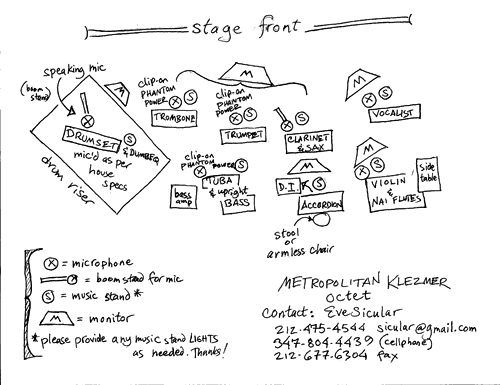 stage front
speaking mic
(boom stand)
M
clip-on
PHANTOM
POWER
X S
TROMBONE
M
clip-on
PHANTOM
POWER
X S
TRUMPET
X S
CLARINET
& SAX
M
X S
VOCALIST
X
DRUMSET
S
& DUMBEQ
mic'd as per
house
specs
drum riser
clip-on
PHANTOM POWER
X S
TUBA
& upright
BASS
bass
amp
M
D.I. X S
ACCORDION
stool
or
armless chair
M
X S
VIOLIN
&
NAI FLUTES
side
table
X = microphone
= boom stand for mic
S = music stand *
M = monitor
*please provide any music stand LIGHTS
as needed. Thanks!
METROPOLITAN KLEZMER
octet
Contact: Eve Sicular
212-475-4544 sicular@gmail.com
347-804-4439 (cellphone)
212-677-6304 fax